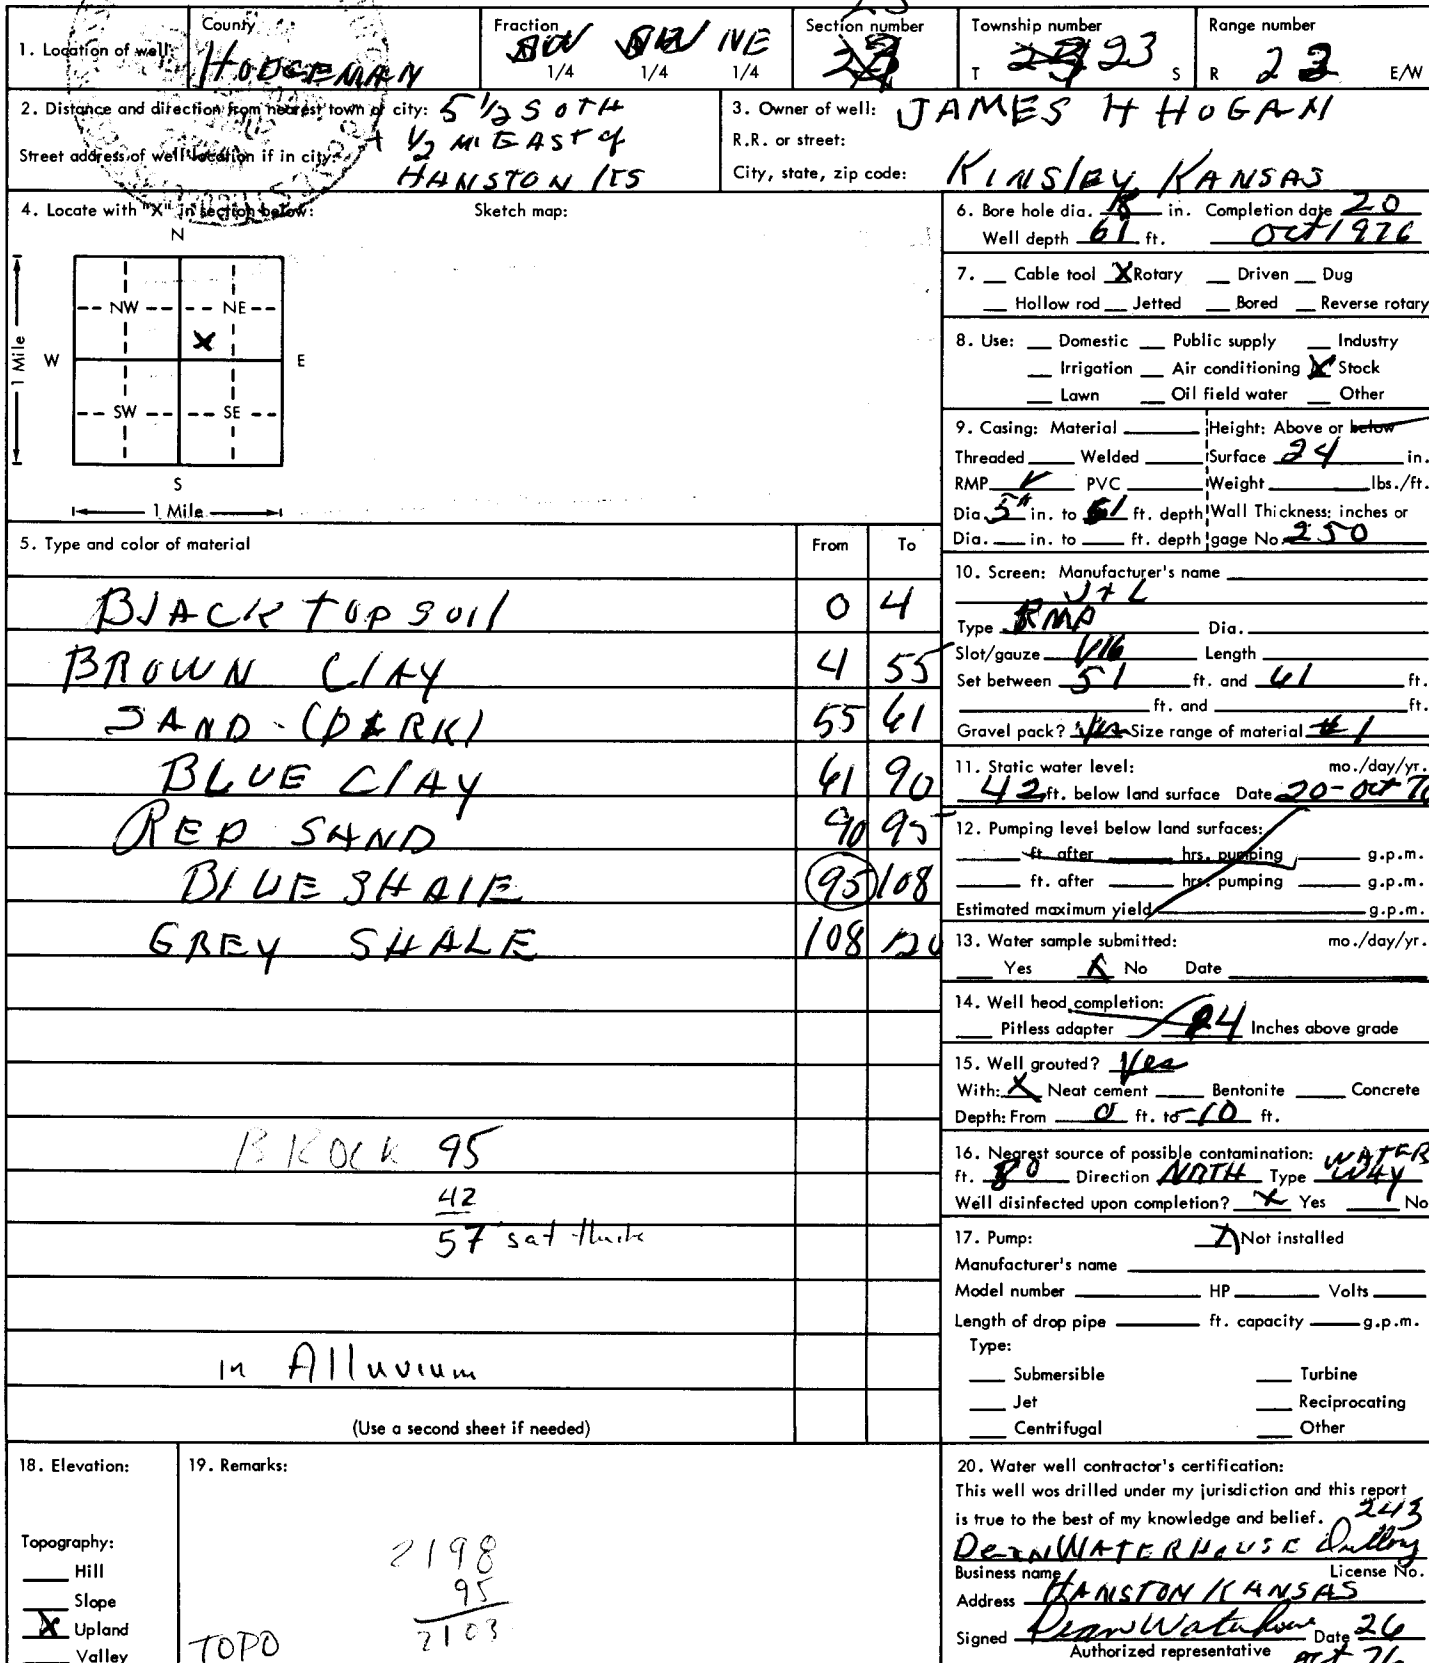 County Fraction Section number Township number Range number
1. Location of well: HODGEMAN SW SW NE 1/4 1/4 1/4 23 T 23 S R 23 E/W
2. Distance and direction from nearest town or city: 5 1/2 SOTH
+ 1/2 MI EAST of
Street address of well location if in city:
HANSTON KS
3. Owner of well: JAMES H HOGAN
R.R. or street:
City, state, zip code: KINSLEY, KANSAS
4. Locate with "X" in section below: Sketch map:
N
NW NE
X
W E
SW SE
S
1 Mile
1 Mile
5. Type and color of material From To
BLACK TOP SOIL 0 4
BROWN CLAY 4 55
SAND - (DARK) 55 61
BLUE CLAY 61 90
RED SAND 90 95
BLUE SHALE 95 108
GREY SHALE 108 120
BROCK 95
42
57 sat thick
in Alluvium
(Use a second sheet if needed)
6. Bore hole dia. in. Completion date 20
Well depth 61 ft. Oct 1976
7. Cable tool X Rotary Driven Dug
Hollow rod Jetted Bored Reverse rotary
8. Use: Domestic Public supply Industry
Irrigation Air conditioning X Stock
Lawn Oil field water Other
9. Casing: Material Height: Above or below
Threaded Welded Surface 24 in.
RMP ✓ PVC Weight lbs./ft.
Dia. 5" in. to 61 ft. depth Wall Thickness: inches or
Dia. in. to ft. depth gage No. 250
10. Screen: Manufacturer's name
J + L
Type RMP Dia.
Slot/gauze 1/16 Length
Set between 51 ft. and 61 ft.
ft. and ft.
Gravel pack? Yes Size range of material # 1
11. Static water level: mo./day/yr.
42 ft. below land surface Date 20-Oct 76
12. Pumping level below land surfaces:
ft. after hrs. pumping g.p.m.
ft. after hrs. pumping g.p.m.
Estimated maximum yield g.p.m.
13. Water sample submitted: mo./day/yr.
Yes X No Date
14. Well head completion:
Pitless adapter 24 Inches above grade
15. Well grouted? Yes
With: X Neat cement Bentonite Concrete
Depth: From 0 ft. to 10 ft.
16. Nearest source of possible contamination: WATER
ft. 80 Direction NRTH Type WAY
Well disinfected upon completion? X Yes No
17. Pump: X Not installed
Manufacturer's name
Model number HP Volts
Length of drop pipe ft. capacity g.p.m.
Type:
Submersible Turbine
Jet Reciprocating
Centrifugal Other
18. Elevation:
Topography:
Hill
Slope
X Upland
Valley
19. Remarks:
2198
95
2103
TOPO
20. Water well contractor's certification:
This well was drilled under my jurisdiction and this report
is true to the best of my knowledge and belief. 243
Dean WATERHOUSE Drilling
Business name License No.
Address HANSTON KANSAS
Signed Dean Waterhouse Date 26
Authorized representative Oct 76